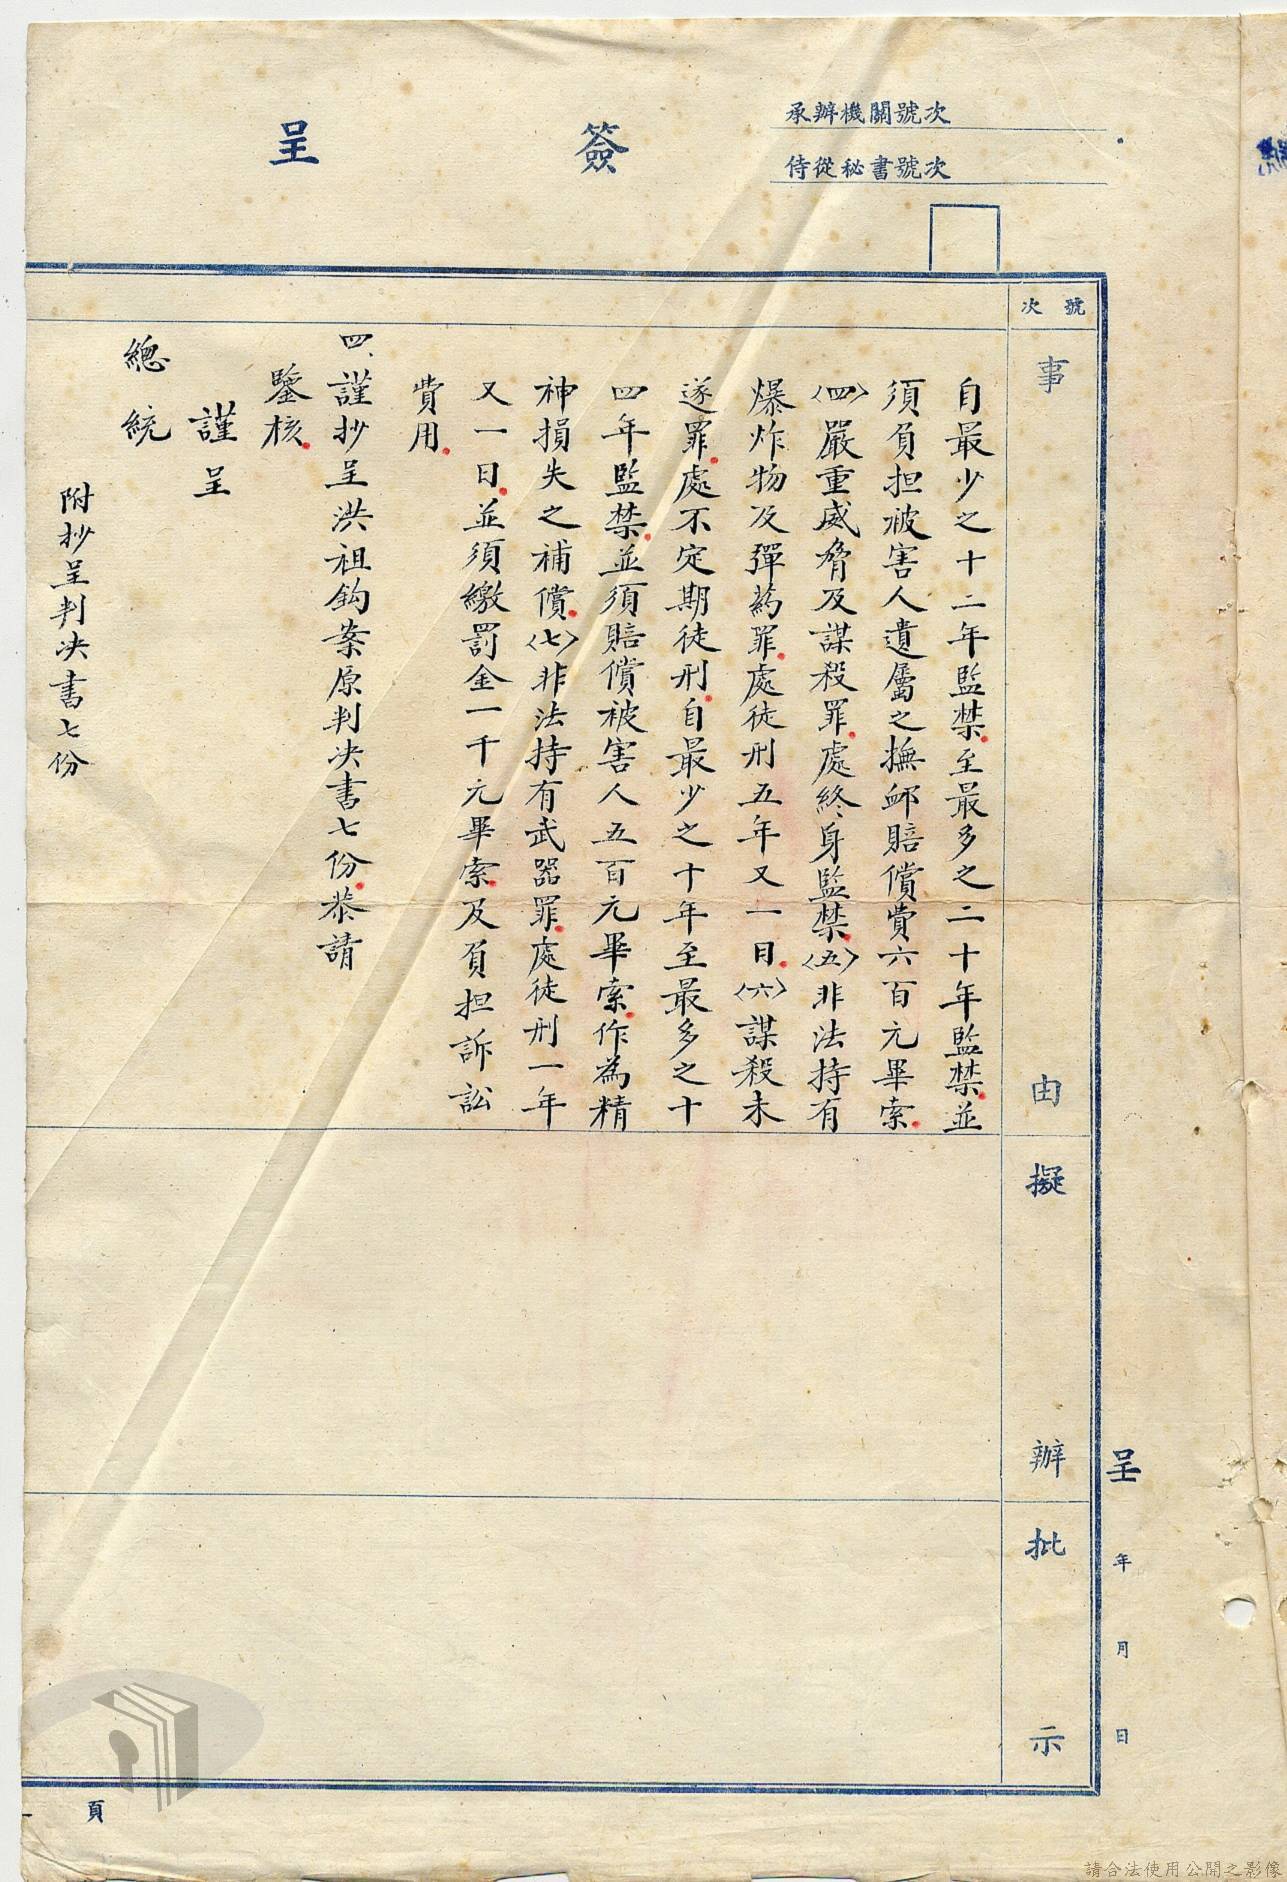 簽呈
承辦機關號次
侍從秘書號次
號次
事由
擬辦
批示
呈 年 月 日
自最少之十二年監禁至最多之二十年監禁並
須負担被害人遺屬之撫卹賠償費六百元畢索
〈四〉嚴重威脅及謀殺罪處終身監禁〈五〉非法持有
爆炸物及彈葯罪處徒刑五年又一日〈六〉謀殺未
遂罪處不定期徒刑自最少之十年至最多之十
四年監禁並須賠償被害人五百元畢索作為精
神損失之補償〈七〉非法持有武器罪處徒刑一年
又一日並須繳罰金一千元畢索及負担訴訟
費用
四、謹抄呈洪祖鈎案原判決書七份恭請
鑒核
謹呈
總統
附抄呈判決書七份
頁
請合法使用公開之影像